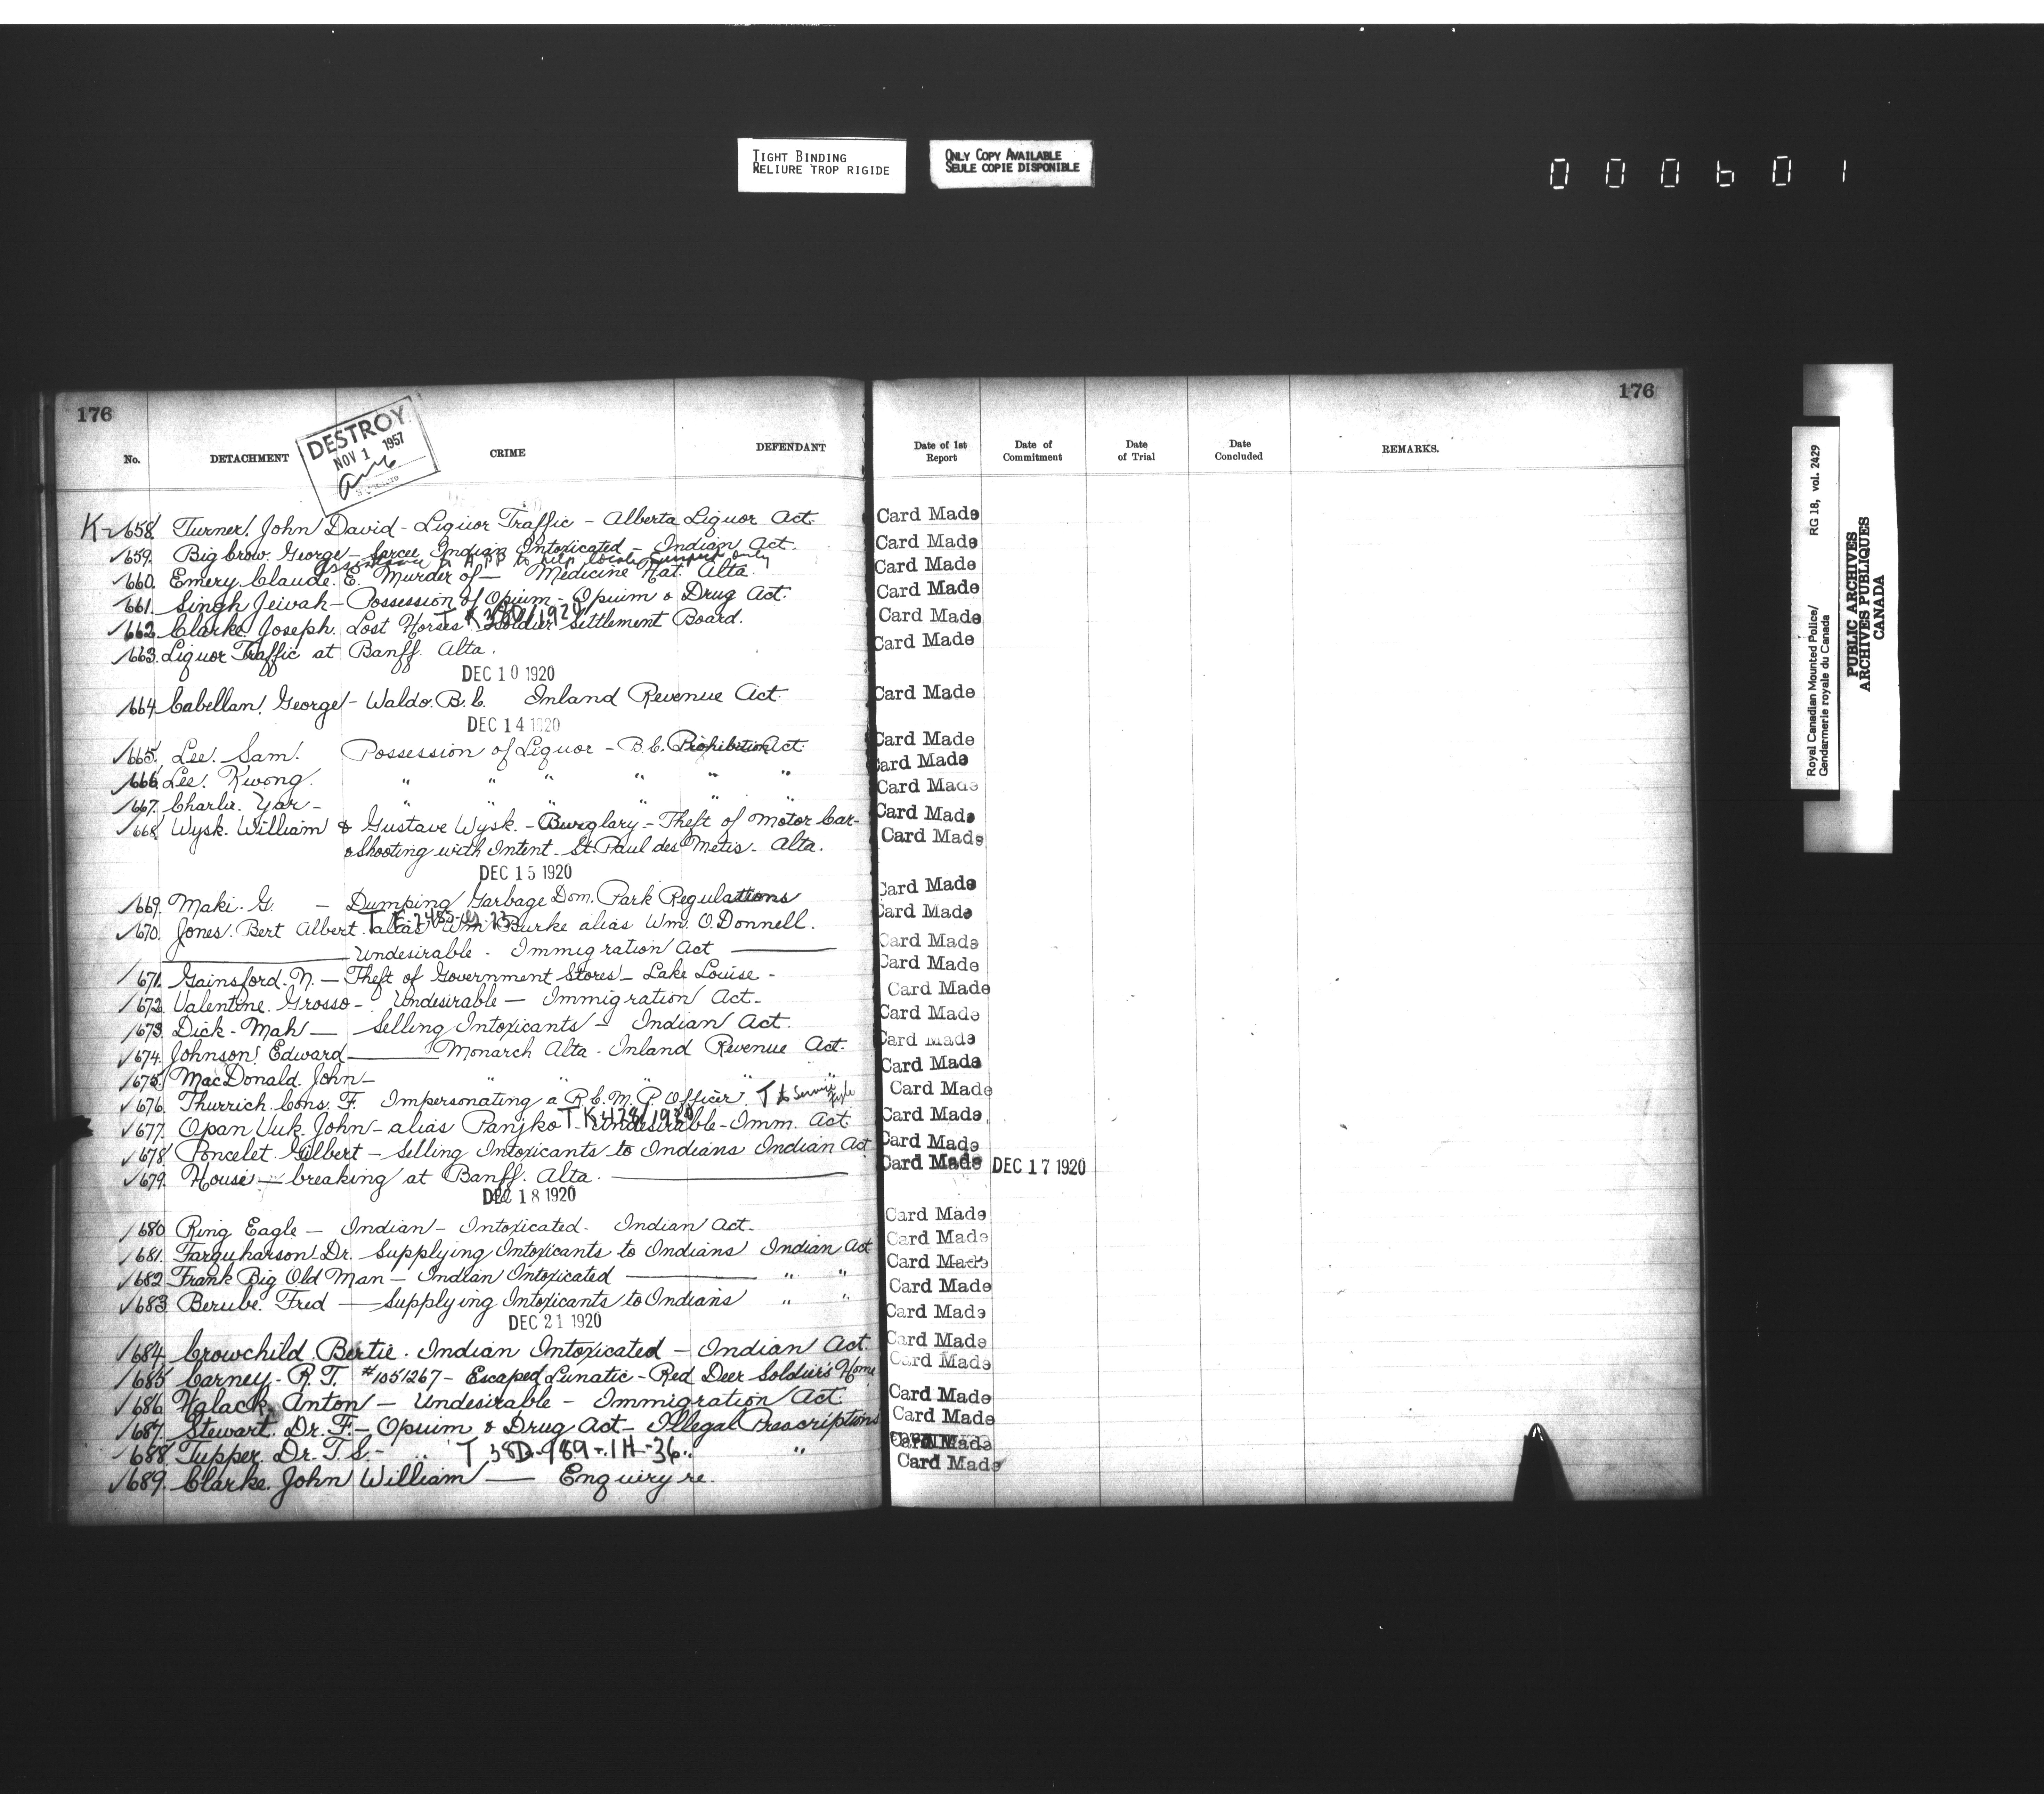 TIGHT BINDING
RELIURE TROP RIGIDE
ONLY COPY AVAILABLE
SEULE COPIE DISPONIBLE
000601
176
DESTROY
NOV 1 1957
No. DETACHMENT CRIME DEFENDANT
K-658. Turner, John David - Liquor Traffic - Alberta Liquor Act.
659. Big Crow. George - Sarcee Indian Intoxicated - Indian Act.
to A.P.P to help locate suspect only
660. Emery Claude. E. Murder of - Medicine Hat. Alta.
661. Singh Jeivah - Possession of Opium - Opium & Drug Act.
T K 380/1920
662. Clarke. Joseph. Lost Horses. Soldier Settlement Board.
663. Liquor Traffic at Banff. Alta.
DEC 10 1920
664. Cabellam. George - Waldo. B.C. Inland Revenue Act.
DEC 14 1920
665. Lee. Sam. Possession of Liquor - B.C. Prohibition Act.
666. Lee. Kwong. " " " " " "
667. Charlie. Yar - " " " " " "
668. Wysk. William & Gustave Wysk. - Burglary - Theft of Motor Car -
& Shooting with Intent - St. Paul des Metis - Alta.
DEC 15 1920
669. Maki. G. - Dumping Garbage Dom. Park Regulations
670. Jones. Bert Albert. alias Wm Burke alias Wm. O.Donnell.
Undesirable - Immigration Act
671. Gainsford. N. - Theft of Government Stores - Lake Louise -
672. Valentine. Grosso - Undesirable - Immigration Act -
673. Dick - Mah - Selling Intoxicants - Indian Act.
674. Johnson. Edward - Monarch Alta - Inland Revenue Act.
675. MacDonald. John - " " " " "
676. Thurrich. Cons. F. Impersonating a R.C.M.P. Officer. T to Service File
T K 428/1920
677. Opan Vuk. John - alias Panjko - Undesirable - Imm. Act.
678. Poncelet. Gilbert - Selling Intoxicants to Indians Indian Act
679. House - breaking at Banff. Alta.
DEC 18 1920
680 Ring Eagle - Indian - Intoxicated - Indian Act.
681. Farquharson Dr. - Supplying Intoxicants to Indians Indian Act
682. Frank Big Old Man - Indian Intoxicated - " "
683. Berube. Fred - Supplying Intoxicants to Indians " "
DEC 21 1920
684. Crowchild Bertie. Indian Intoxicated - Indian Act.
685. Carney. R.T. #1051267 - Escaped Lunatic - Red Deer Soldier's Home
686. Halack. Anton - Undesirable - Immigration Act.
687. Stewart. Dr. F. - Opium & Drug Act - Illegal Prescriptions
688. Tupper. Dr. T.S. - " T 38D-989-1H-36 " "
689. Clarke. John William - Enquiry re.
176
Date of 1st Report
Date of Commitment
Date of Trial
Date Concluded
REMARKS.
Card Made
Card Made
Card Made
Card Made
Card Made
Card Made
Card Made
Card Made
Card Made
Card Made
Card Made
Card Made
Card Made
Card Made
Card Made
Card Made
Card Made
Card Made
Card Made
Card Made
Card Made
Card Made
Card Made
Card Made DEC 17 1920
Card Made
Card Made
Card Made
Card Made
Card Made
Card Made
Card Made
Card Made
Card Made
Card Made
Card Made
Royal Canadian Mounted Police/ RG 18, vol. 2429
Gendarmerie royale du Canada
PUBLIC ARCHIVES
ARCHIVES PUBLIQUES
CANADA